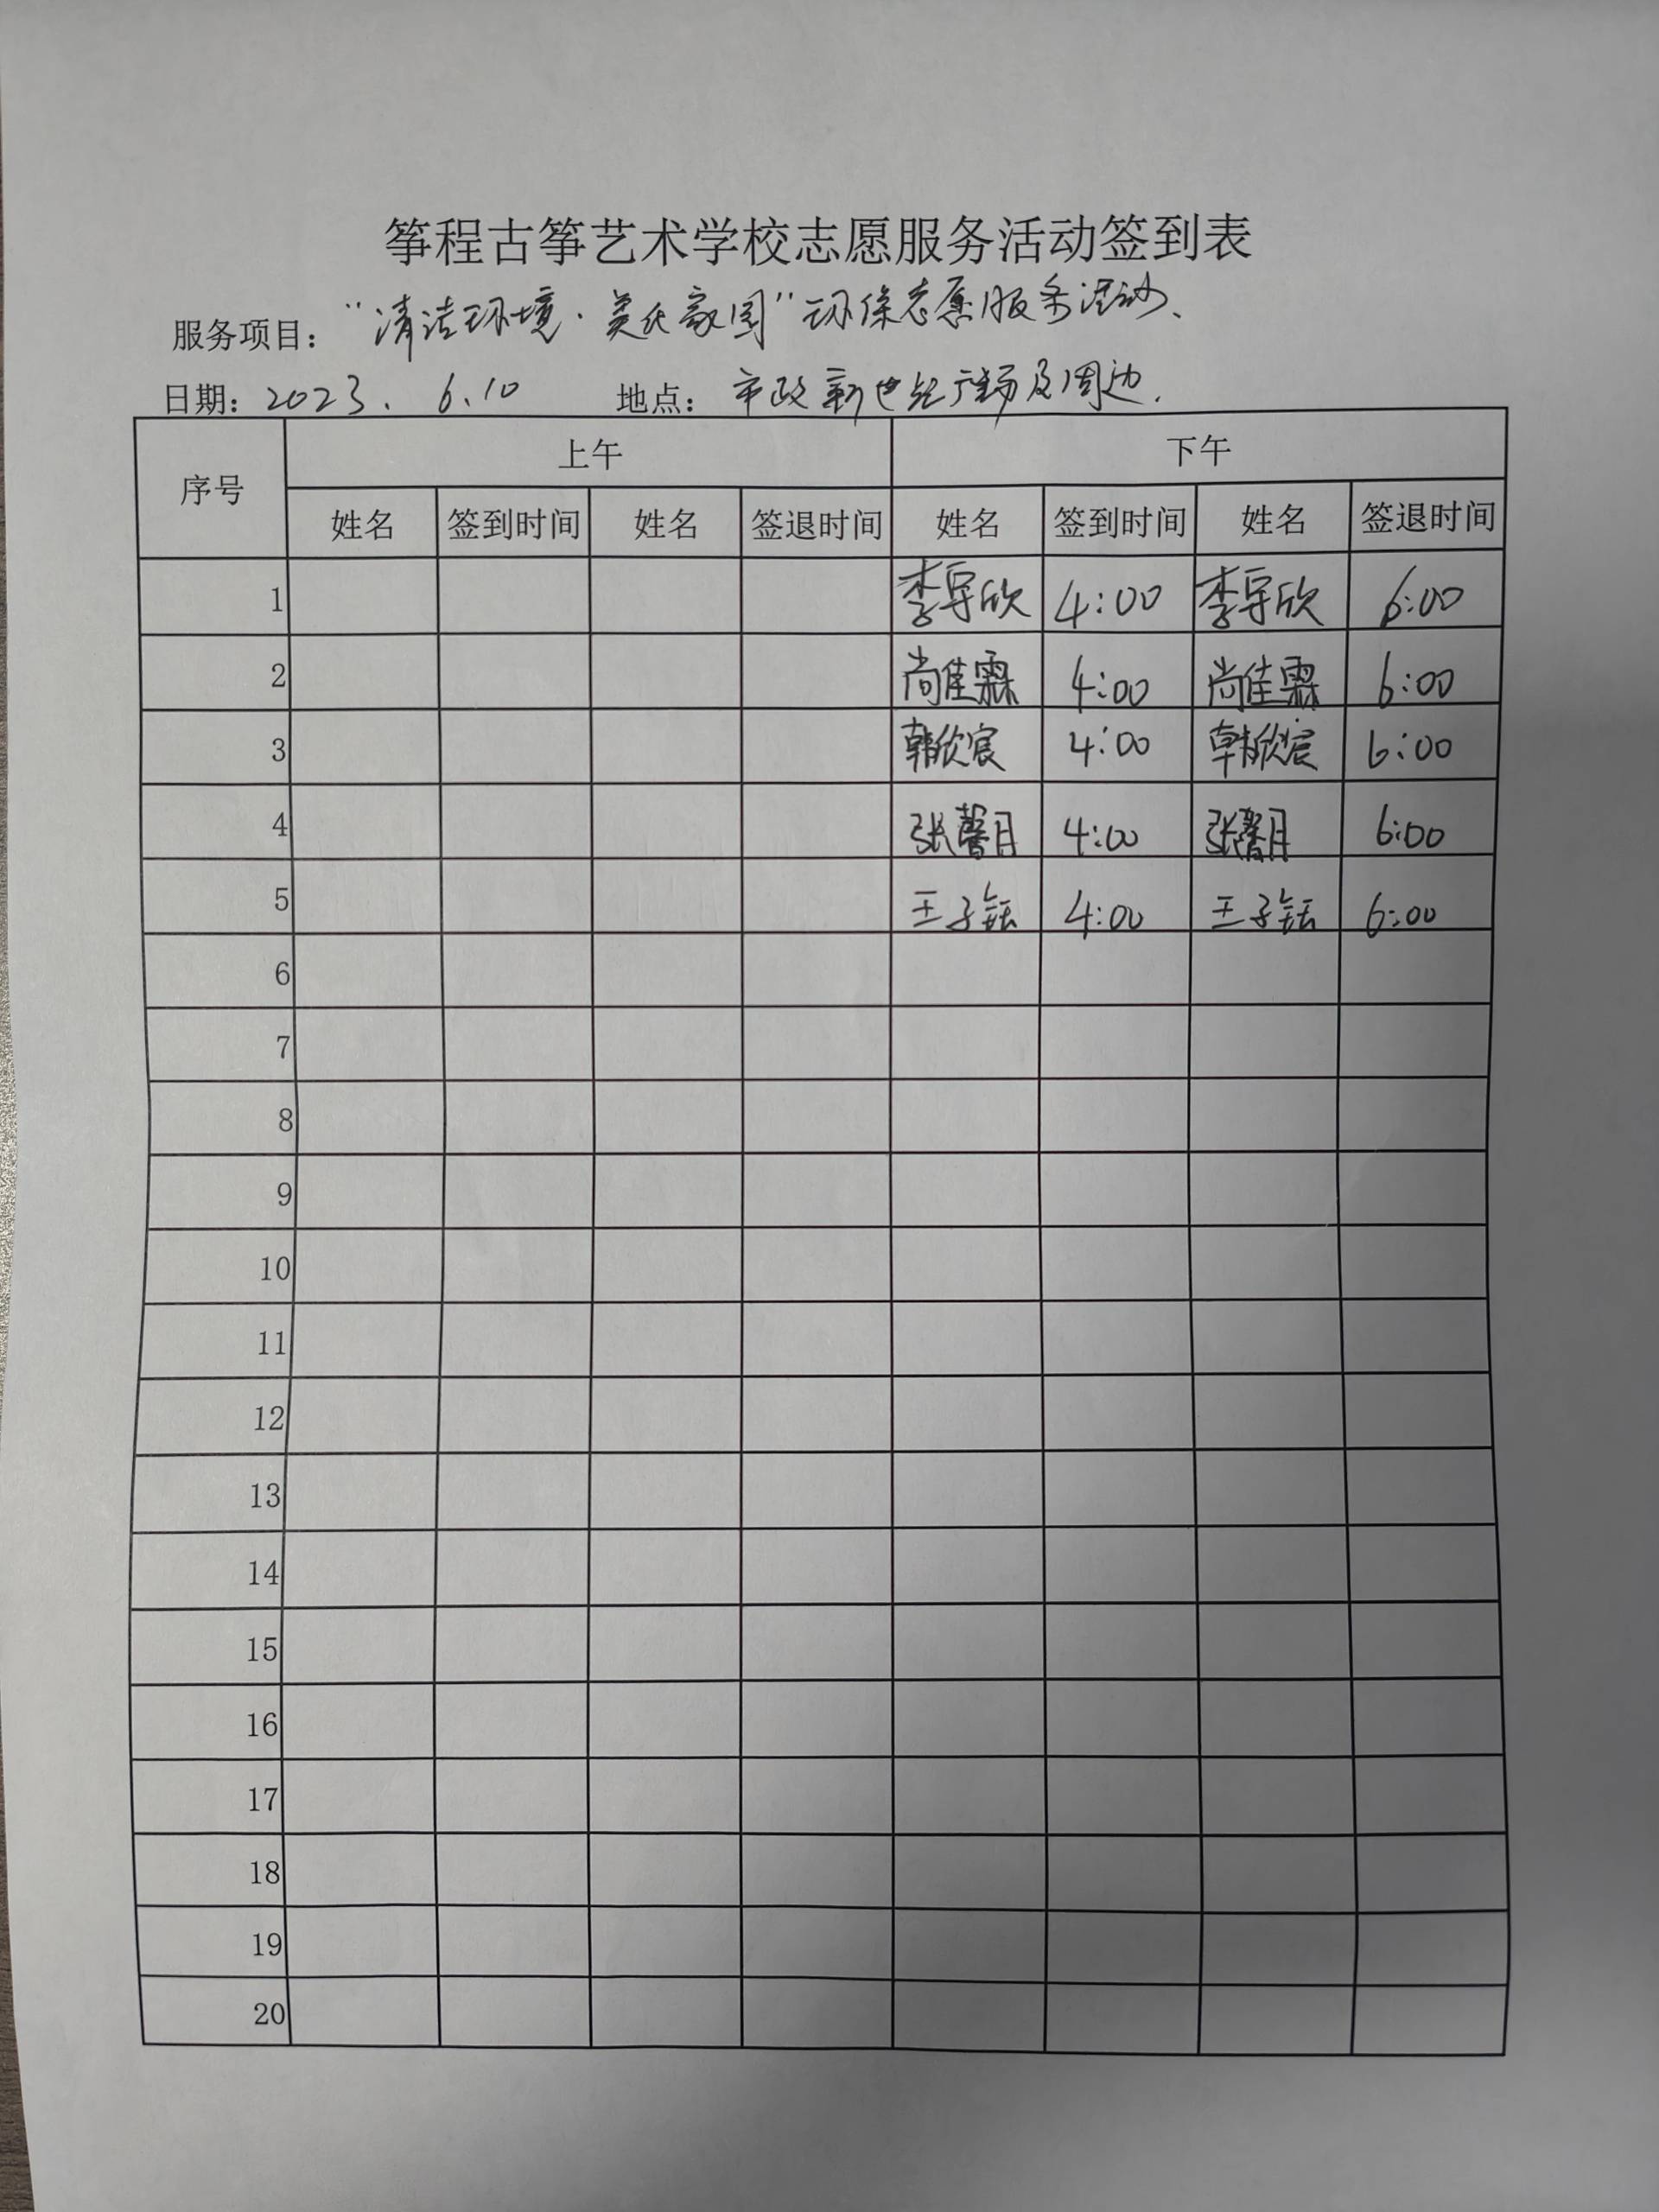 筝程古筝艺术学校志愿服务活动签到表
服务项目：“清洁环境·美化家园”环保志愿服务活动、
日期：2023. 6.10 地点：市政新世纪广场及周边.
序号 上午 下午
姓名 签到时间 姓名 签退时间 姓名 签到时间 姓名 签退时间
1 李宇欣 4:00 李宇欣 6:00
2 尚佳霖 4:00 尚佳霖 6:00
3 韩欣宸 4:00 韩欣宸 6:00
4 张馨月 4:00 张馨月 6:00
5 王子 4:00 王子 6:00
6
7
8
9
10
11
12
13
14
15
16
17
18
19
20